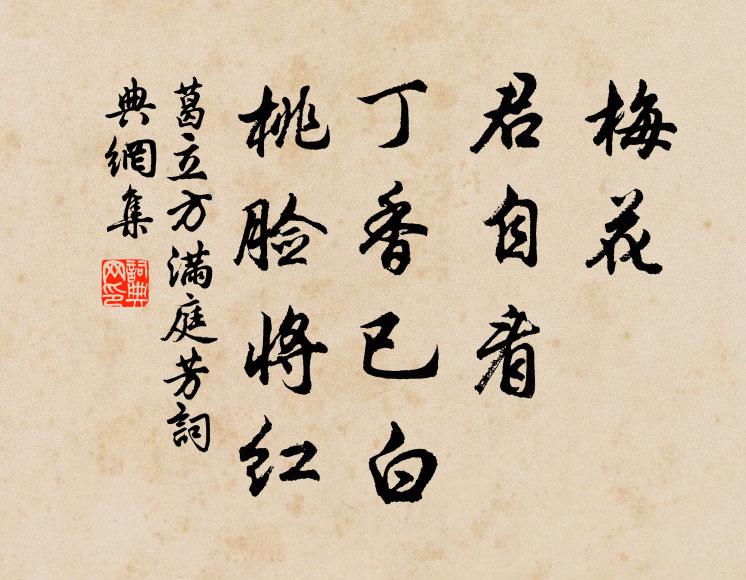 梅花
君自看
丁香已白
桃脸将红
葛立方满庭芳詞
典網集
詞典網印